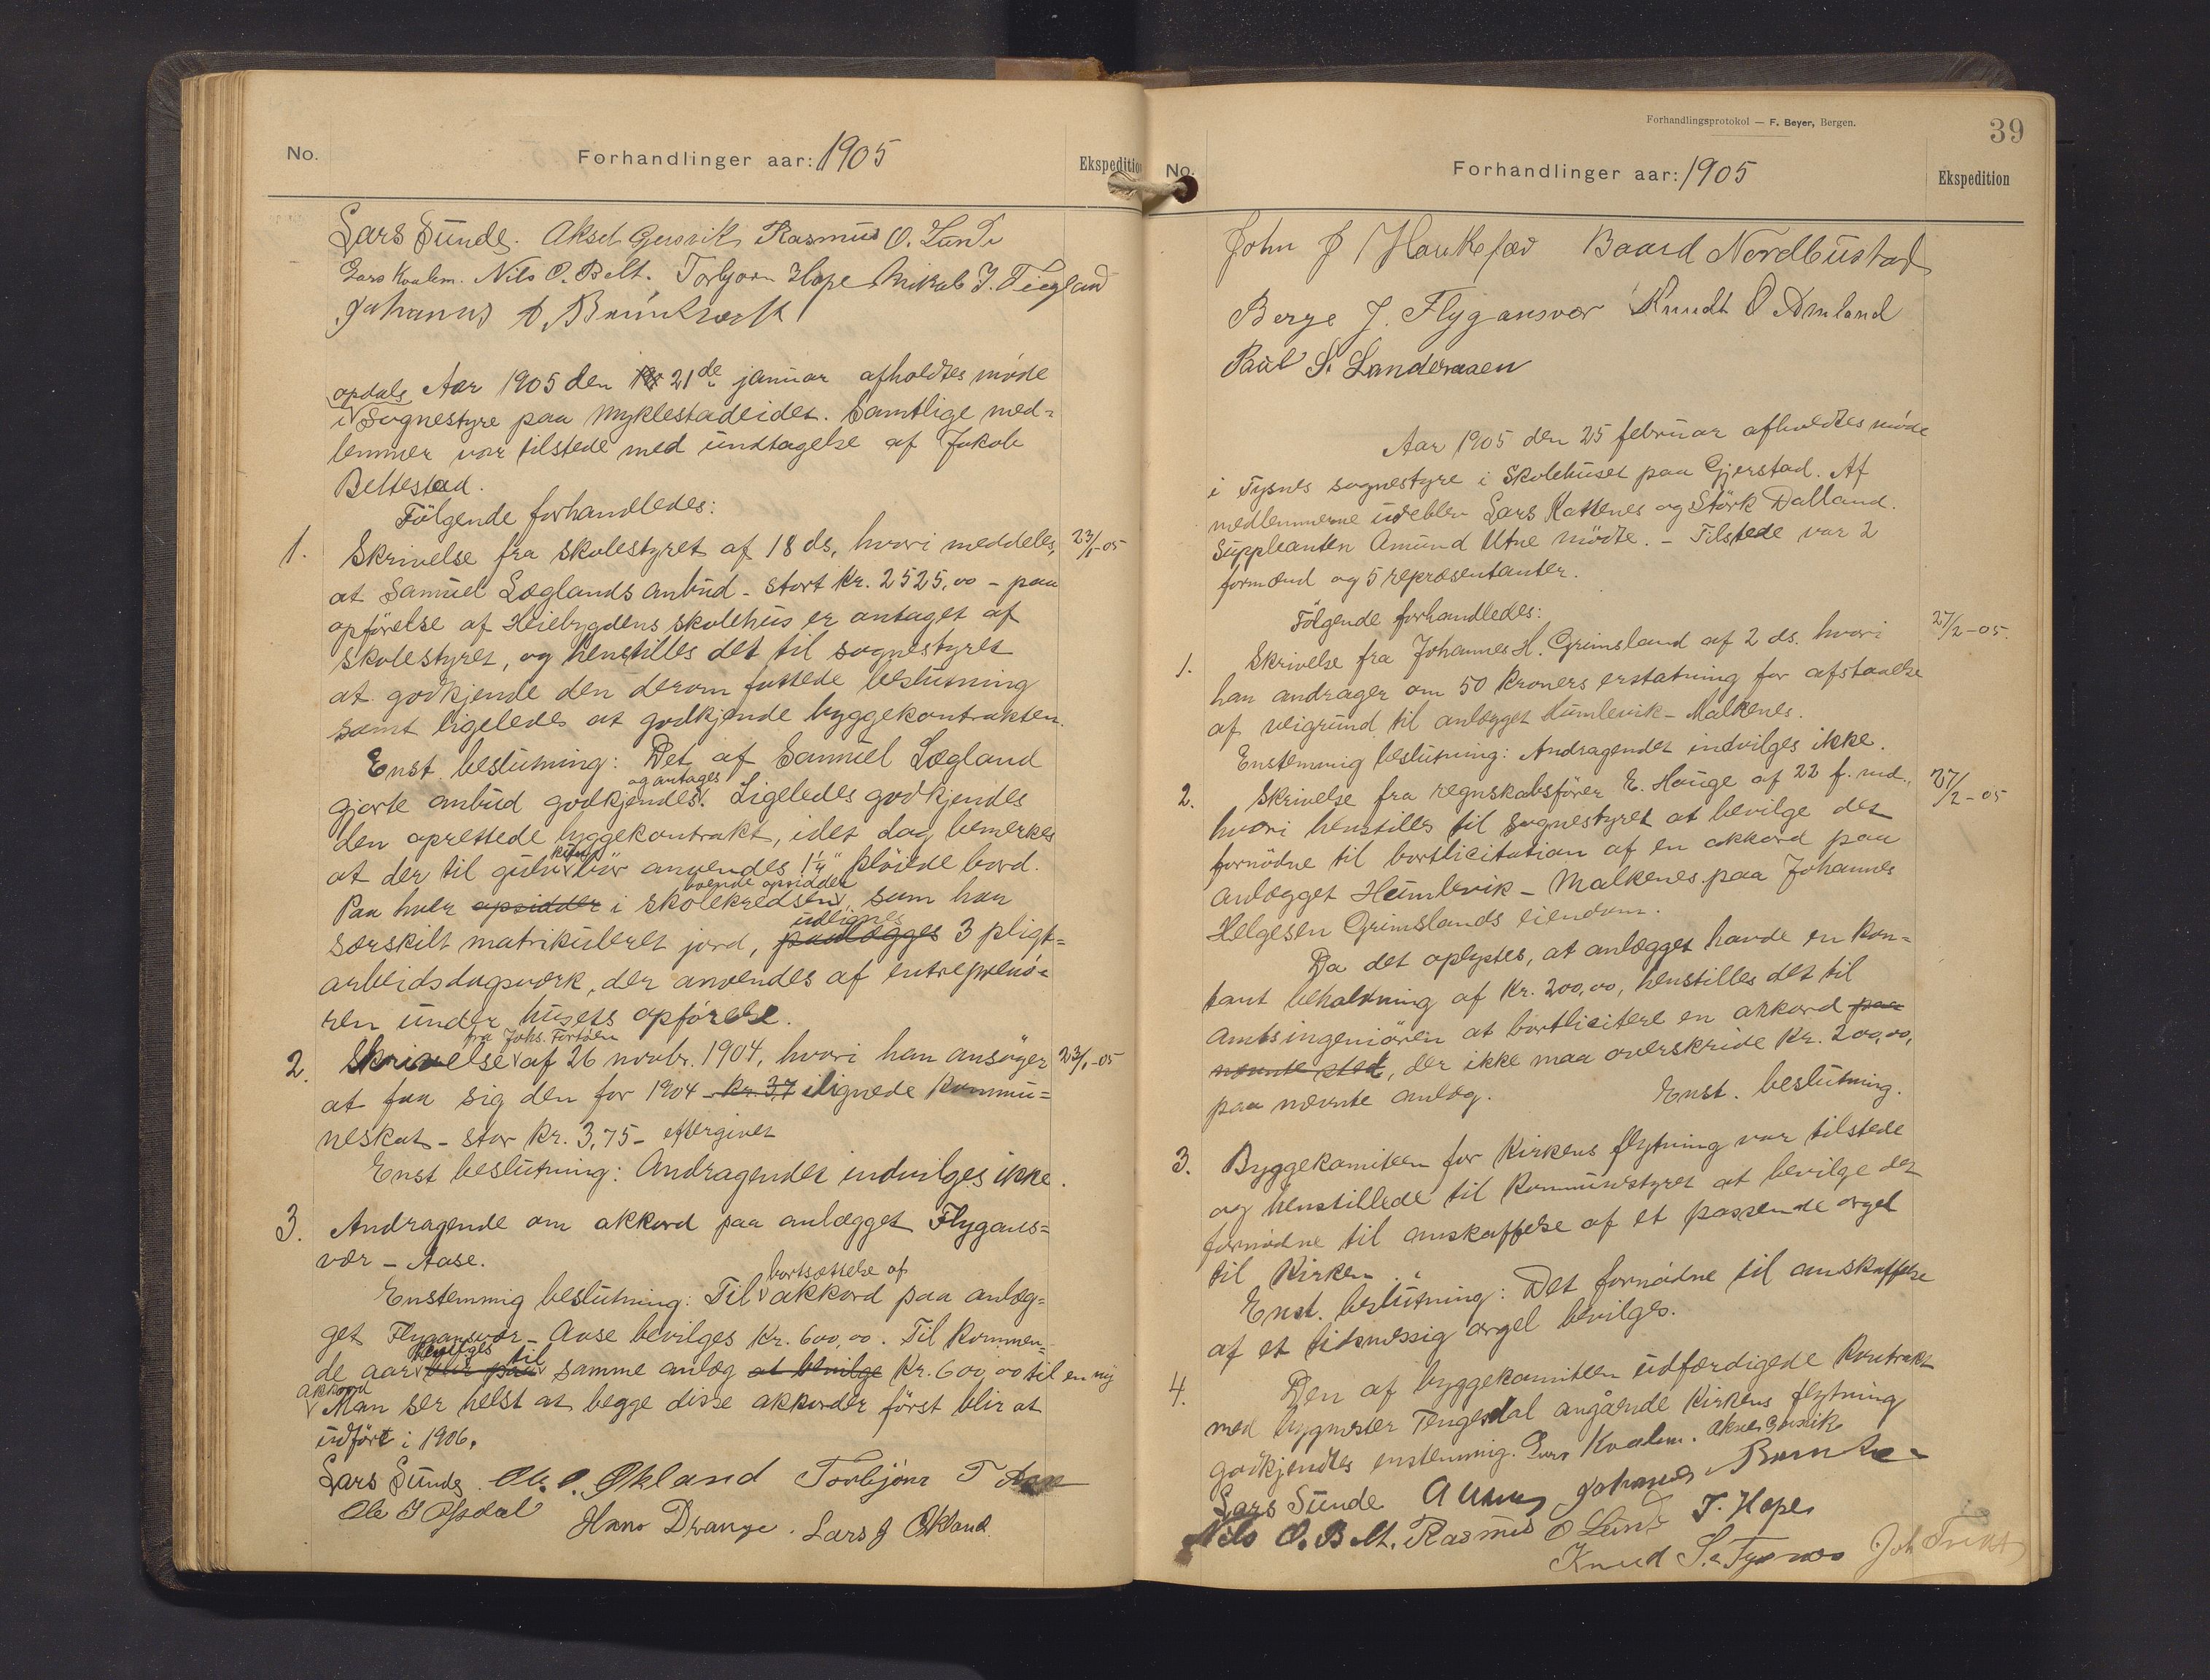 No.
Forhandlinger aar: 1905
Ekspedition
Lars Sunde. Aksel Gjersvik Rasmus O. Lunde
Lars Kvalem. Nils O. Belt. Torbjørn Hope Mikal J. Teigland
Johannes A.
opdals Aar 1905 den 21de januar afholdtes møde
i Sognestyre paa Myklestadeidet. Samtlige med-
lemmer var tilstede med undtagelse af Jakob
Beltestad.
Følgende forhandledes:
1. Skrivelse fra skolestyret af 18 ds, hvori meddeles, 23/1-05
at Samuel Læglands anbud - stort kr. 2525,00 - paa
opførelse af Heiebygdens skolehus er antaget af
skolestyret, og henstilles det til sognestyret
at godkjende den derom fattede beslutning
samt ligeledes at godkjende byggekontrakten.
Enst. beslutning: Det af Samuel Lægland
og antages
gjorte anbud godkjendes. Ligeledes godkjendes
den oprettede byggekontrakt, idet dog bemerkes
at der til gulv bør anvendes 1¼" pløiede bord.
boende opsidder
Paa hver opsidder i skolekredsen, som har
udlignes
særskilt matrikuleret jord, paalægges 3 pligt-
arbeidsdagsverk, der anvendes af entreprenø-
ren under husets opførelse.
fra Johs. Fortøen
2. Skrivelse af 26 novbr. 1904, hvori han ansøger 23/1-05
at faa sig den for 1904 - kr. 3,7 ilignede kommu-
neskat - stor kr. 3,75 - eftergivet
Enst beslutning: Andragendet indvilges ikke.
3. Andragende om akkord paa anlægget Flygans-
vær - Aase.
bortsættelse af
Enstemmig beslutning: Til akkord paa anlæg-
get Flygansvær - Aase bevilges kr. 600,00. Til kommen-
bevilges til
de aar samme anlæg at bevilge kr. 600,00 til en ny
akkord
Man ser helst at begge disse akkorder først blir at
udført i 1906.
Lars Sunde. O. O. Økland Torbjørn T Aase
Ole T Opdal Hans Drange. Lars J Økland
Forhandlingsprotokol — F. Beyer, Bergen.
39
No.
Forhandlinger aar: 1905
Ekspedition
John J Haukefær Baard Nordbustad
Berge J. Flygansvær Knudt O Amland
Paul S. Landeraaen
Aar 1905 den 25 februar afholdtes møde
i Tysnes sognestyre i Skolehuset paa Gjerstad. Af
medlemmerne udeblev Lars Kattenes og Størk Dalland.
Suppleanten Amund Utne mødte. - Tilstede var 2
formænd og 5 repræsentanter.
Følgende forhandledes:
1. Skrivelse fra Johannes H. Grimsland af 2 ds. hvori 27/2-05.
han andrager om 50 kroners erstatning for afstaaelse
af veigrund til anlægget Humlevik - Malkenes.
Enstemmig beslutning: Andragendet indvilges ikke.
2. Skrivelse fra regnskabsfører E. Hauge af 22 f. md., 27/2-05
hvori henstilles til sognestyret at bevilge det
fornødne til bortlicitation af en akkord paa
anlægget Humlevik - Malkenes paa Johannes
Helgesen Grimslands eiendom.
Da det oplystes, at anlægget havde en kon-
tant beholdning af kr. 200,00, henstilles det til
amtsingeniøren at bortlicitere en akkord paa
nævnte sted, der ikke maa overskride kr. 200,00,
paa nævnte anlæg. Enst. beslutning.
3. Byggekomiteen for kirkens flytning var tilstede
og henstillede til kommunestyret at bevilge det
fornødne til anskaffelse af et passende orgel
til kirken.
Enst. beslutning: Det fornødne til anskaffelse
af et tidsmessig orgel bevilges.
4. Den af byggekomiteen udfærdigede kontrakt
med bygmester Tengesdal angående kirkens flytning
godkjendtes enstemmig. Lars Kvalem. Aksel Gjersvik
Lars Sunde A Utne Johannes
Nils O. Belt. Rasmus O Lunde T. Hope
Knud S. Tysnes Joh